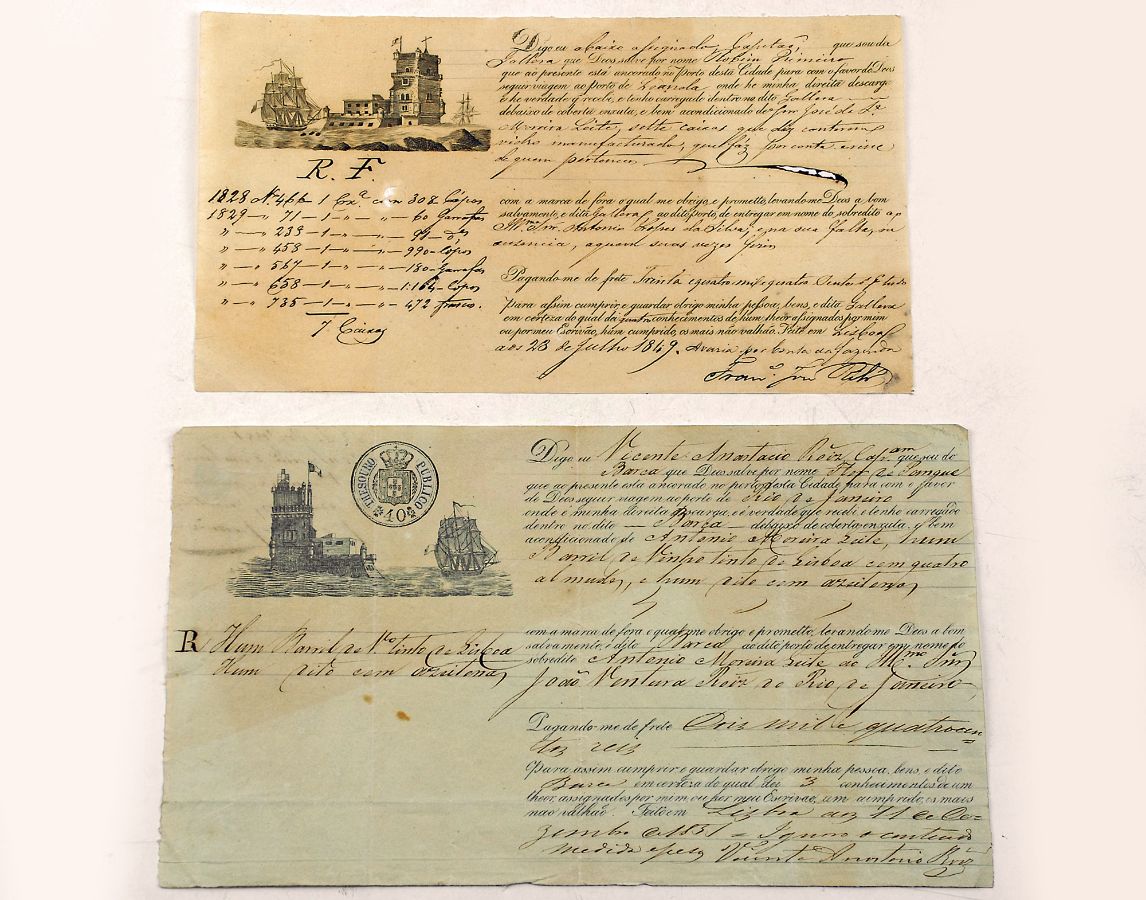 Digo eu abaixo assignado, Capitaõ, que sou da
Gallera que Deos salve por nome Primeiro
que ao presente está ancorado no Porto desta Cidade para com o favor de Deos
seguir viagem ao porto de Loanda onde he minha direita descarga
e he verdade q̃ recebi, e tenho carregado dentro na dita Gallera
debaixo de coberta enxuta, e bem acondicionado de Snr José da Sª
Moreira Leite, sette caixas que diz conterem
vidro manufacturado, que faz por conta e risco
de quem pertencer
R. F.
1828 Nº 466 - 1 Cxª com 308 Cópos
1829 - " 71 - 1 - " - " - 60 Garrafas
" - " 239 - 1 - " - " - 91 - dªs
" - " 458 - 1 - " - " - 990 - Cópos
" - " 567 - 1 - " - " - 180 - Garrafas
" - " 658 - 1 - " - " - 1:164 - Cópos
" - " 735 - 1 - " - " - 472 frascos.
7 Caixas
com a marca de fora o qual me obrigo, e prometto, levando-me Deos a bom
salvamento, e dita Gallera ao dito porto, de entregar em nome do sobredito ao
Illmo Snr. Antonio Lopes da Silva, e na sua falta, ou
ausencia, a quem suas vezes fizer
Pagando-me de frete Trinta e quatro mil e quatro Centos
Para assim cumprir, e guardar obrigo minha pessoa, bens, e dita Gallera
em certeza do qual dei quatro conhecimentos de hum theor assignados por mim
ou por meu Escrivão, hum cumprido, os mais não valhão. Feito em Lisboa
aos 23 de Julho 1849. Avaria por conta da fazenda
THESOURO PUBLICO
40
Digo eu Vicente Anastacio Roiz, Capam que sou do
Barca que Deos salve por nome Flor de
que ao presente esta ancorado no porto desta Cidade para com o favor
de Deos seguir viagem ao porto de Rio de Janeiro
onde é minha direita descarga, e é verdade que recebi, e tenho carregado
dentro no dito — Barca — debaixo de coberta enxuta, e bem
acondicionado de Antonio Moreira Leite, hum
Barril de Vinho tinto de Lisboa com quatro
almudes, e hum dito com azeitonas
R Hum Barril de Vho tinto de Lisboa
Hum dito com azeitonas
com a marca de fora o qual me obrigo e prometto, levando me Deos a bom
salvamento, e dito Barca ao dito porto de entregar em nome do
sobredito Antonio Moreira Leite ao Illmo Snr
João Ventura Roiz, do Rio de Janeiro
Pagando-me de frete Dois mil e quatrocen=
tos reis
Para assim cumprir, e guardar obrigo minha pessoa, bens, e dito
Barca em certeza do qual dei 3 conhecimentos de um
theor, assignados por mim ou por meu Escrivão, um cumprido, os mais
não valhão. Feito em Lisboa aos 11 de De=
zembro de 1851 = Ignoro o conteudo
medida e pezo Vicente Anastacio Roiz